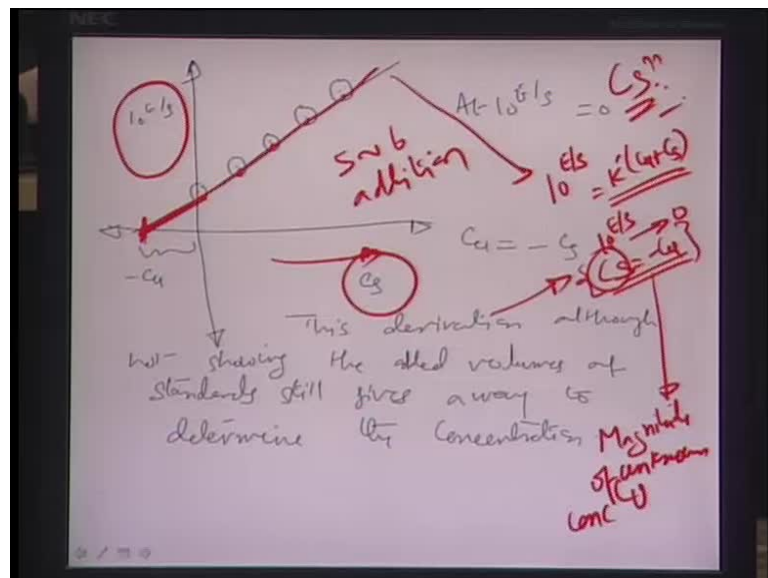 NEC
10^E/S
At 10^E/S = 0
Cs^n..
10^E/S = K'(Cu+Cs)
5 ~ 6
addition
Cu = - Cs
10^E/S → 0
Cs = -Cu
-Cu
Cs
This derivation although
not showing the added volumes of
standards still gives a way to
determine the Concentration
Magnitude
of unknown
conc Cu